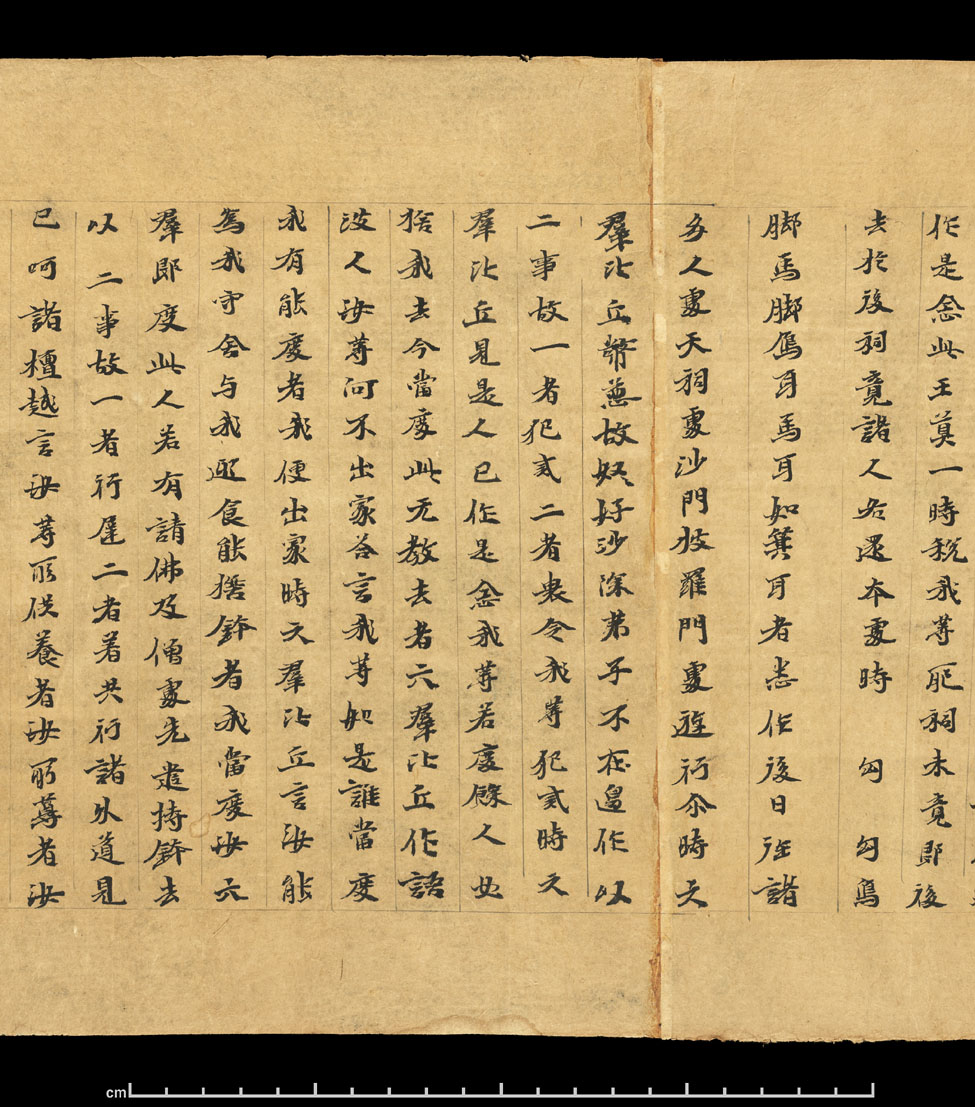 作是念此王莫一時税我等肥祠未竟即後
去於後祠竟諸人各還本處時匈匈
脚馬脚鴈耳馬耳如箕耳者悉作後日往諸
多人處天祠處沙門婆羅門處遊行尒時六
羣比丘弊惡故奴好沙深弟子不在邊作以
二事故一者犯戒二者畏令我等犯戒時六
羣比丘見是人已作是念我等若度餘人如
捨我去今當度此无教去者六羣比丘作語
彼人汝等何不出家答言我等如是誰當度
我有能度者我便出家時六羣比丘言汝能
為我守舍与我迎食能擔鉢者我當度汝六
羣即度此人若有請佛及僧處先遣持鉢去
以二事故一者行遲二者着共行諸外道見
已呵諸檀越言汝等所供養者汝所尊者汝
cm